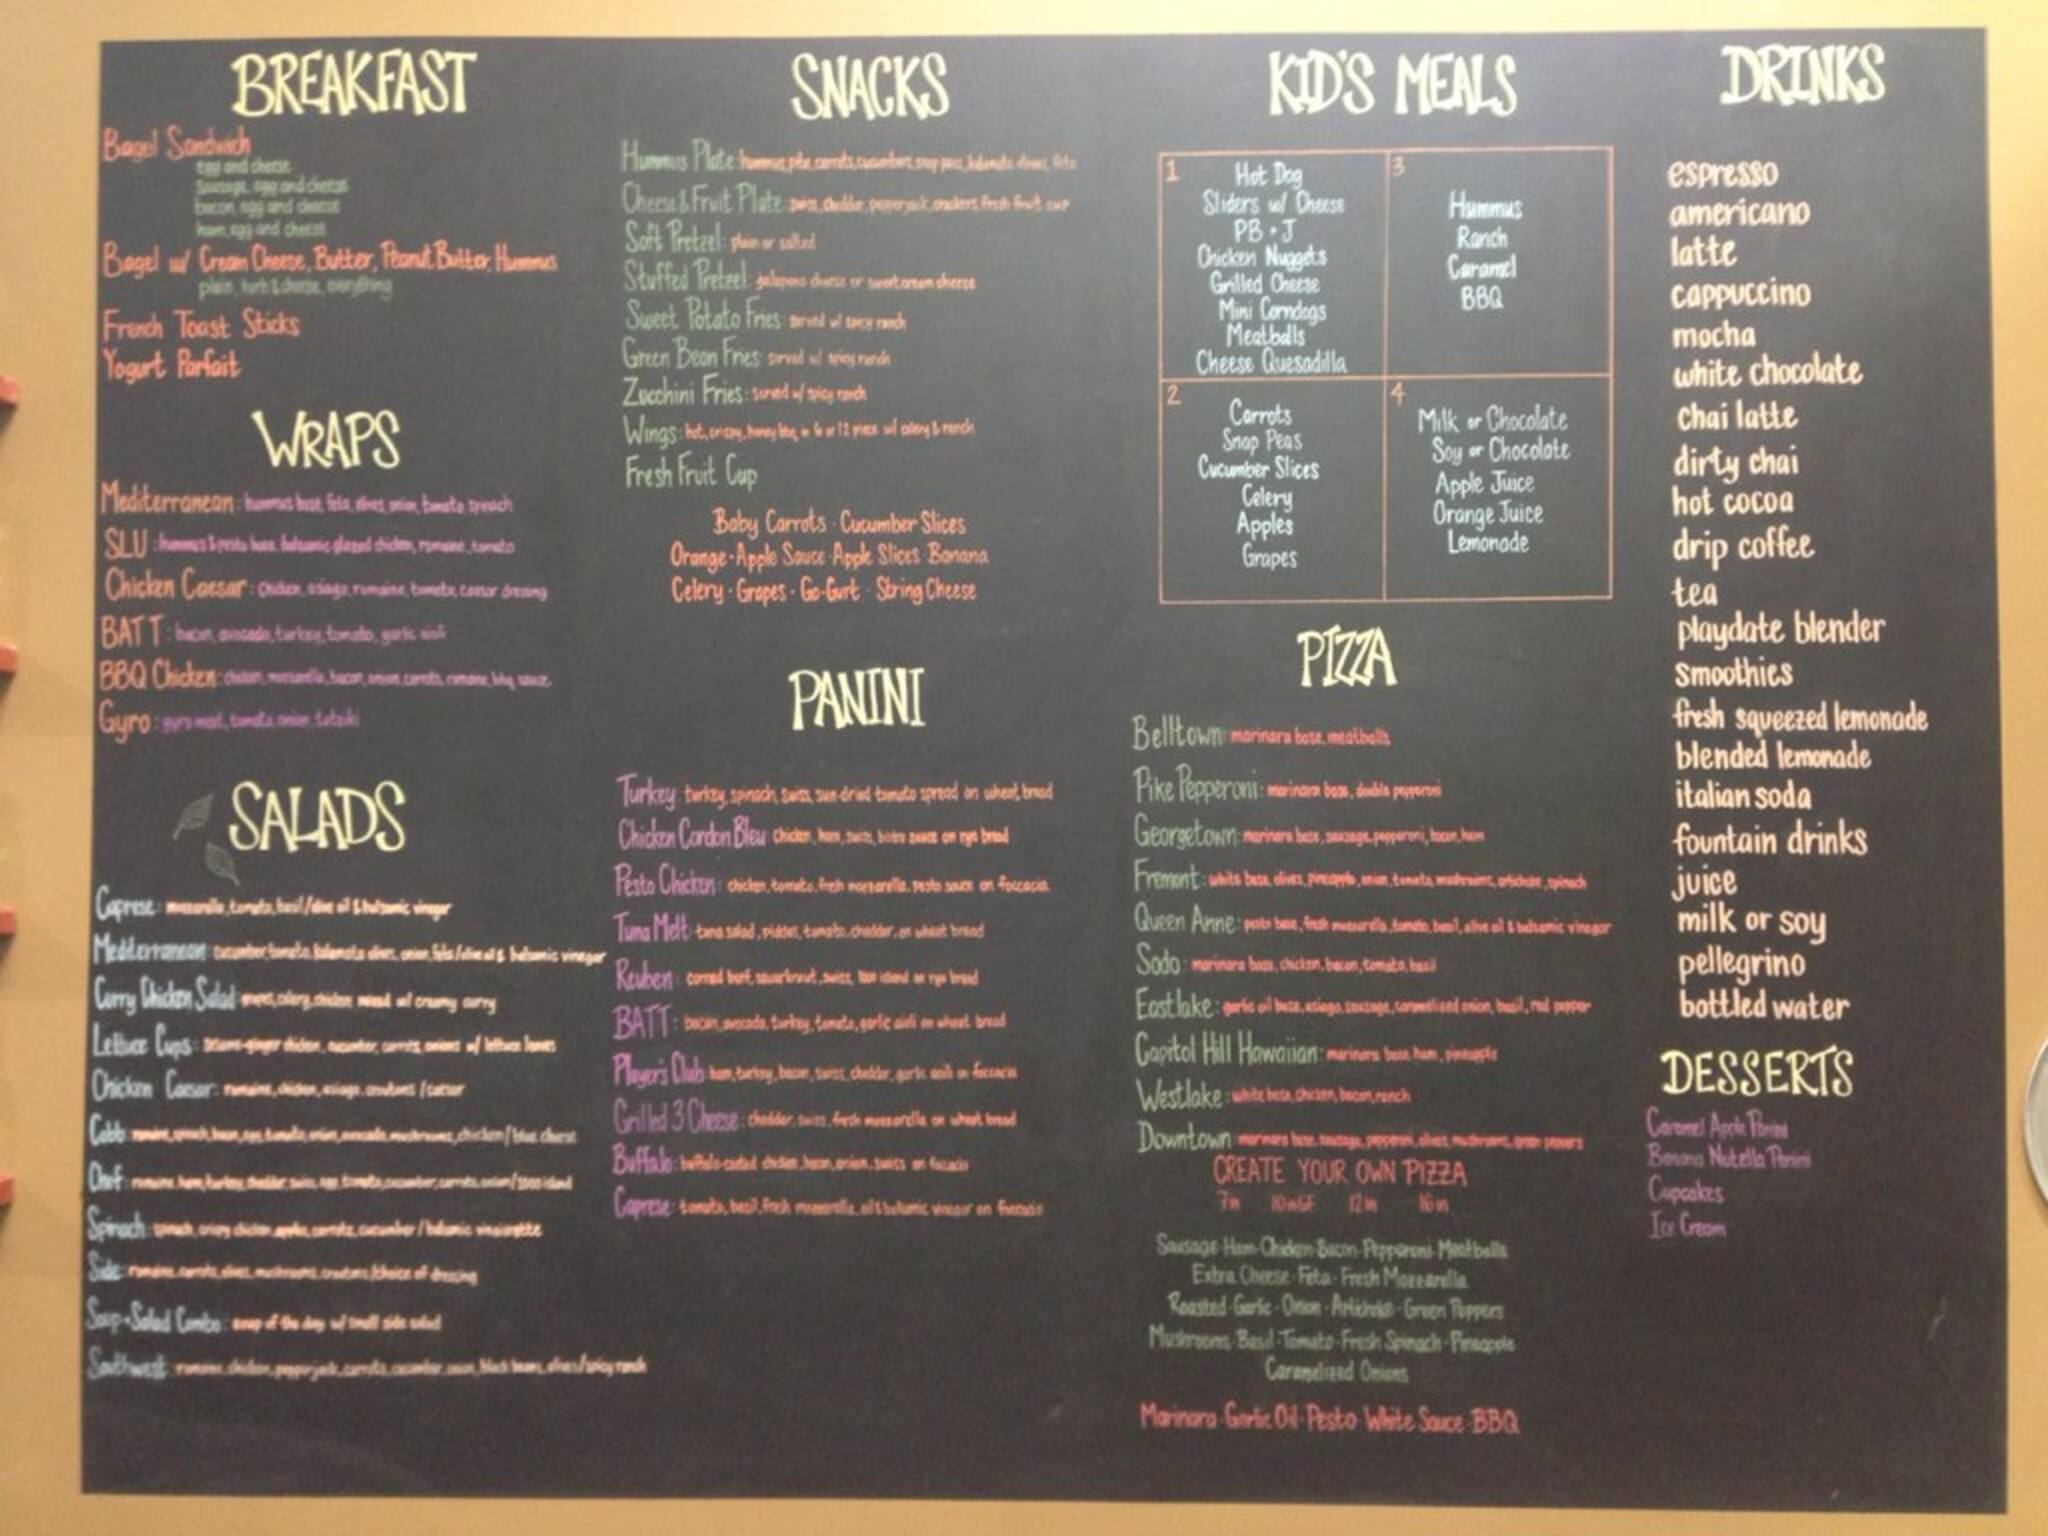 BREAKFAST
Bagel Sandwich
egg and cheese
sausage, egg and cheese
bacon, egg and cheese
ham, egg and cheese
Bagel w/ Cream Cheese, Butter, Peanut Butter, Hummus
plain, herb & cheese, everything
French Toast Sticks
Yogurt Parfait
WRAPS
Mediterranean: hummus base, feta, olives, onion, tomato, spinach
SLU: hummus & pesto base, balsamic glazed chicken, romaine, tomato
Chicken Caesar: chicken, asiago, romaine, tomato, caesar dressing
BATT: bacon, avocado, turkey, tomato, garlic aioli
BBQ Chicken: chicken, mozzarella, bacon, onion, carrots, romaine, bbq sauce
Gyro: gyro meat, tomato, onion, tzatziki
SALADS
Caprese: mozzarella, tomato, basil/olive oil & balsamic vinegar
Mediterranean: cucumber, tomato, kalamata olives, onion, feta/olive oil & balsamic vinegar
Curry Chicken Salad: grapes, celery, chicken mixed w/ creamy curry
Lettuce Cups: sesame-ginger chicken, cucumber, carrots, onions w/ lettuce leaves
Chicken Caesar: romaine, chicken, asiago, croutons/caesar
Cobb: romaine, spinach, bacon, egg, tomato, onion, avocado, mushrooms, chicken/blue cheese
Chef: romaine, ham, turkey, cheddar, swiss, egg, tomato, cucumber, carrots, onion/1000 island
Spinach: spinach, crispy chicken, apples, carrots, cucumber/balsamic vinaigrette
Side: romaine, carrots, olives, mushrooms, croutons/choice of dressing
Soup + Salad Combo: soup of the day w/ small side salad
Southwest: romaine, chicken, pepperjack, carrots, cucumber, onion, black beans, olives/spicy ranch
SNACKS
Hummus Plate: hummus, pita, carrots, cucumbers, snap peas, kalamata olives, feta
Cheese & Fruit Plate: swiss, cheddar, pepperjack, crackers, fresh fruit cup
Soft Pretzel: plain or salted
Stuffed Pretzel: jalapeno cheese or sweet cream cheese
Sweet Potato Fries: served w/ spicy ranch
Green Bean Fries: served w/ spicy ranch
Zucchini Fries: served w/ spicy ranch
Wings: hot, crispy, honey bbq, in 6 or 12 piece w/ celery & ranch
Fresh Fruit Cup
Baby Carrots · Cucumber Slices
Orange · Apple Sauce · Apple Slices · Banana
Celery · Grapes · Go-Gurt · String Cheese
PANINI
Turkey: turkey, spinach, swiss, sun-dried tomato spread on wheat bread
Chicken Cordon Bleu: chicken, ham, swiss, bistro sauce on rye bread
Pesto Chicken: chicken, tomato, fresh mozzarella, pesto sauce on foccacia
Tuna Melt: tuna salad, pickles, tomato, cheddar, on wheat bread
Reuben: corned beef, sauerkraut, swiss, 1000 island on rye bread
BATT: bacon, avocado, turkey, tomato, garlic aioli on wheat bread
Player's Club: ham, turkey, bacon, swiss, cheddar, garlic aioli on foccacia
Grilled 3 Cheese: cheddar, swiss, fresh mozzarella on wheat bread
Buffalo: buffalo-coated chicken, bacon, onion, swiss on foccacia
Caprese: tomato, basil, fresh mozzarella, oil & balsamic vinegar on foccacia
KID'S MEALS
1
Hot Dog
Sliders w/ Cheese
PB + J
Chicken Nuggets
Grilled Cheese
Mini Corndogs
Meatballs
Cheese Quesadilla
2
Carrots
Snap Peas
Cucumber Slices
Celery
Apples
Grapes
3
Hummus
Ranch
Caramel
BBQ
4
Milk or Chocolate
Soy or Chocolate
Apple Juice
Orange Juice
Lemonade
PIZZA
Belltown: marinara base, meatballs
Pike Pepperoni: marinara base, double pepperoni
Georgetown: marinara base, sausage, pepperoni, bacon, ham
Fremont: white base, olives, pineapple, onion, tomato, mushrooms, artichoke, spinach
Queen Anne: pesto base, fresh mozzarella, tomato, basil, olive oil & balsamic vinegar
Sodo: marinara base, chicken, bacon, tomato, basil
Eastlake: garlic oil base, asiago, sausage, caramelized onion, basil, red pepper
Capitol Hill Hawaiian: marinara base, ham, pineapple
Westlake: white base, chicken, bacon, ranch
Downtown: marinara base, sausage, pepperoni, olives, mushrooms, green peppers
CREATE YOUR OWN PIZZA
7in 10inGF 12in 16in
Sausage · Ham · Chicken · Bacon · Pepperoni · Meatballs
Extra Cheese · Feta · Fresh Mozzarella
Roasted Garlic · Onion · Artichoke · Green Peppers
Mushrooms · Basil · Tomato · Fresh Spinach · Pineapple
Caramelized Onions
Marinara · Garlic Oil · Pesto · White Sauce · BBQ
DRINKS
espresso
americano
latte
cappuccino
mocha
white chocolate
chai latte
dirty chai
hot cocoa
drip coffee
tea
playdate blender
smoothies
fresh squeezed lemonade
blended lemonade
italian soda
fountain drinks
juice
milk or soy
pellegrino
bottled water
DESSERTS
Caramel Apple Panini
Banana Nutella Panini
Cupcakes
Ice Cream